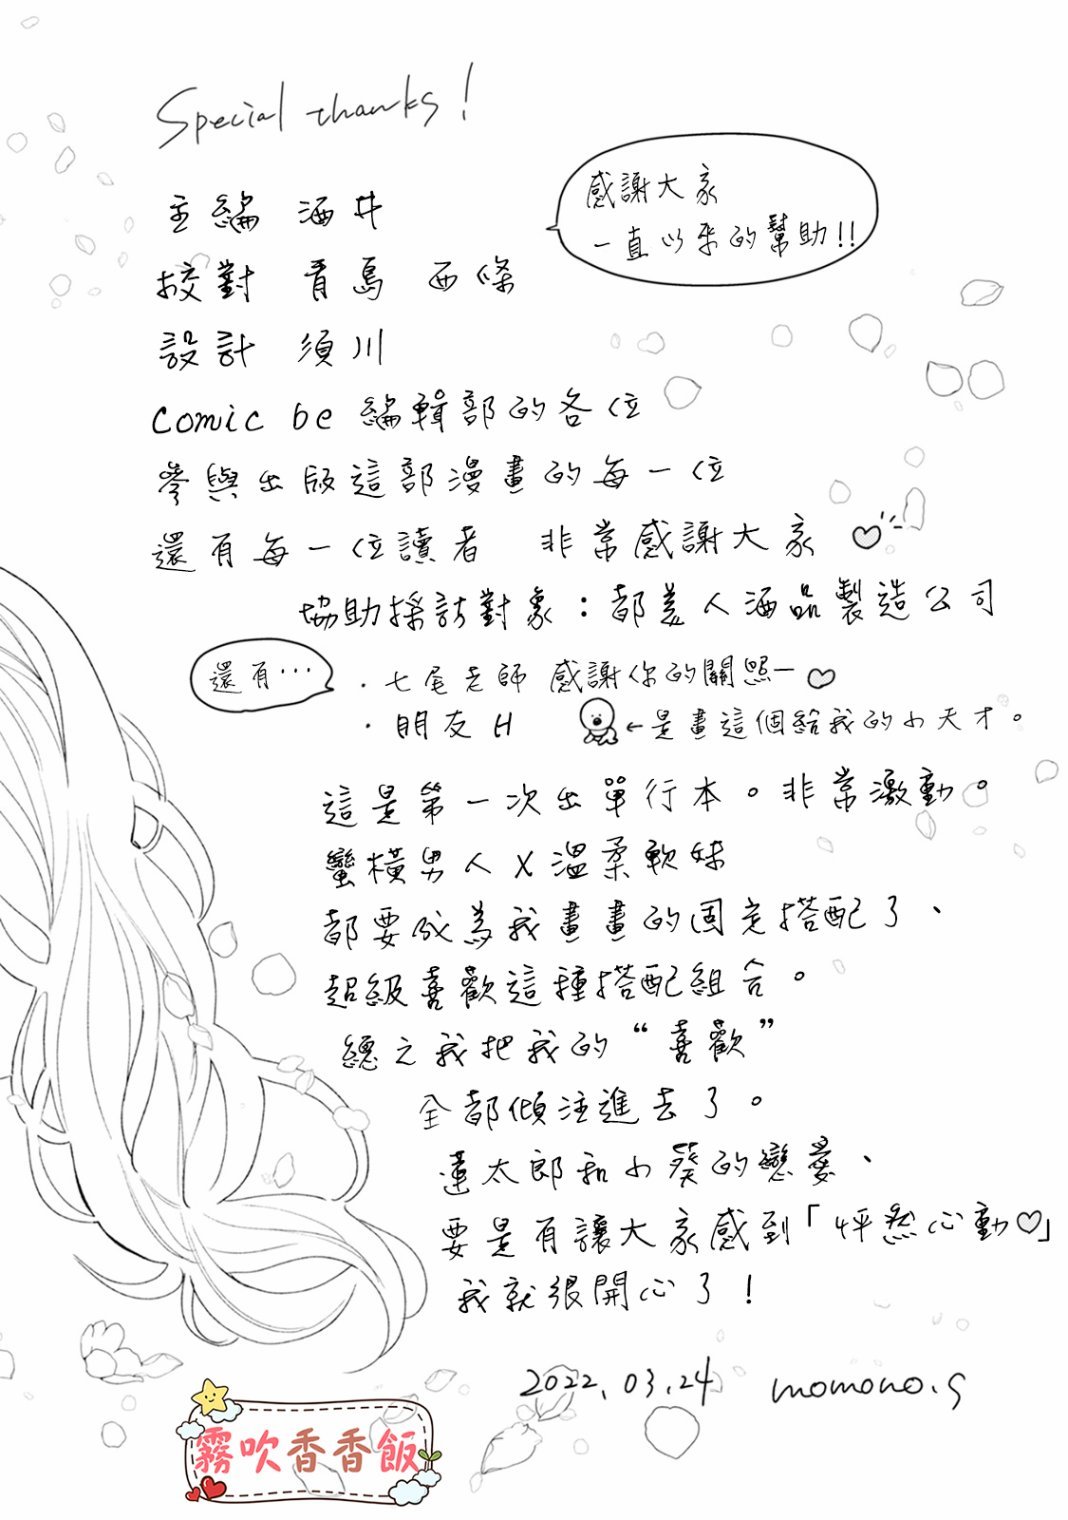 Special thanks!
感謝大家
一直以來的幫助!!
主編 酒井
校對 青島 西條
設計 須川
comic be 編輯部的各位
參與出版這部漫畫的每一位
還有每一位讀者 非常感謝大家♡
協助採訪對象：都美人酒品製造公司
還有…
・七尾老師 感謝你的關照ー♡
・朋友H ←是畫這個給我的小天才。
這是第一次出單行本。非常激動。
蠻橫男人X溫柔軟妹
都要成為我畫畫的固定搭配了、
超級喜歡這種搭配組合。
總之我把我的“喜歡”
全部傾注進去了。
蓮太郎和小葵的戀愛、
要是有讓大家感到「怦然心動♡」
我就很開心了！
2022.03.24 momono.g
霧吹香香飯